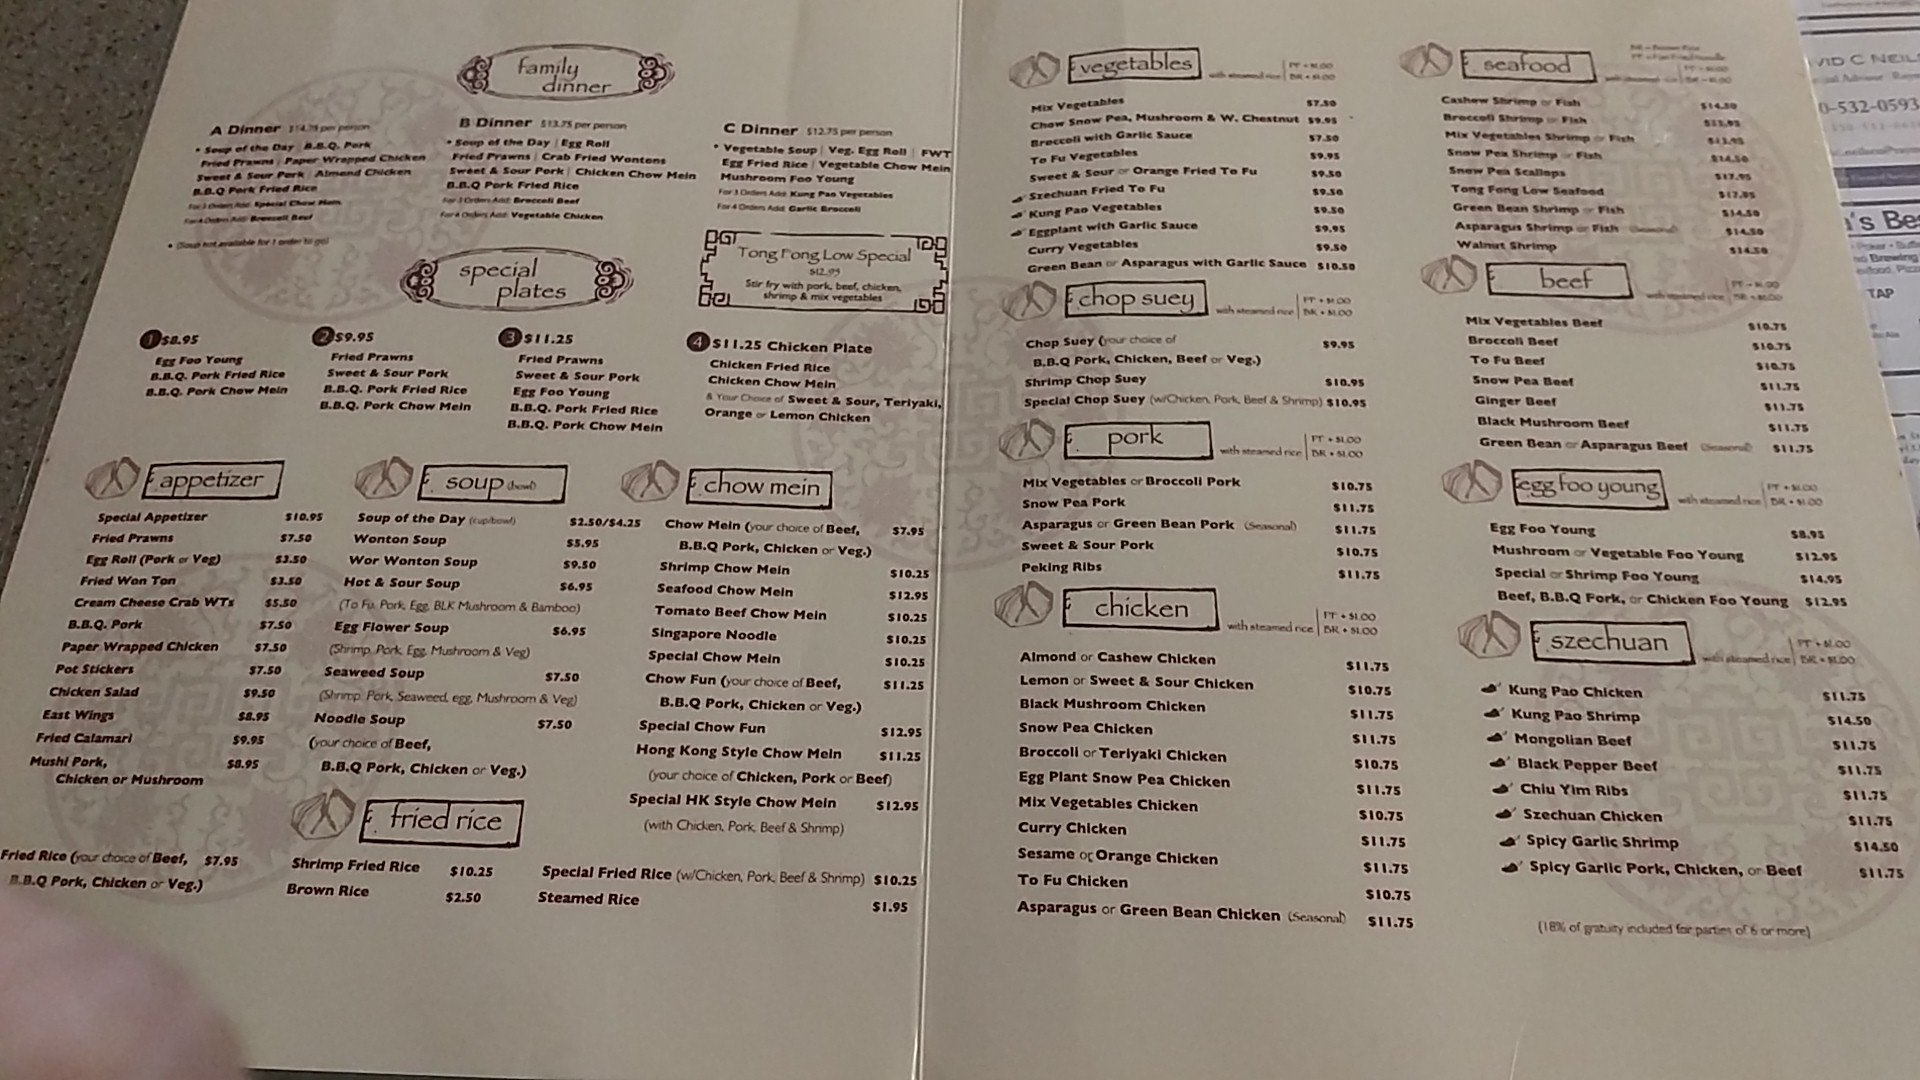 family
dinner
A Dinner $14.75 per person
• Soup of the Day | B.B.Q. Pork
Fried Prawns | Paper Wrapped Chicken
Sweet & Sour Pork | Almond Chicken
B.B.Q Pork Fried Rice
For 3 Orders Add: Special Chow Mein
For 4 Orders Add: Broccoli Beef
• (Soup not available for 1 order to go)
B Dinner $13.75 per person
• Soup of the Day | Egg Roll
Fried Prawns | Crab Fried Wontons
Sweet & Sour Pork | Chicken Chow Mein
B.B.Q Pork Fried Rice
For 3 Orders Add: Broccoli Beef
For 4 Orders Add: Vegetable Chicken
C Dinner $12.75 per person
• Vegetable Soup | Veg. Egg Roll | FWT
Egg Fried Rice | Vegetable Chow Mein
Mushroom Foo Young
For 3 Orders Add: Kung Pao Vegetables
For 4 Orders Add: Garlic Broccoli
special
plates
Tong Fong Low Special
$12.95
Stir fry with pork, beef, chicken,
shrimp & mix vegetables
1 $8.95
Egg Foo Young
B.B.Q. Pork Fried Rice
B.B.Q. Pork Chow Mein
2 $9.95
Fried Prawns
Sweet & Sour Pork
B.B.Q. Pork Fried Rice
B.B.Q. Pork Chow Mein
3 $11.25
Fried Prawns
Sweet & Sour Pork
Egg Foo Young
B.B.Q. Pork Fried Rice
B.B.Q. Pork Chow Mein
4 $11.25 Chicken Plate
Chicken Fried Rice
Chicken Chow Mein
& Your Choice of Sweet & Sour, Teriyaki,
Orange or Lemon Chicken
appetizer
Special Appetizer $10.95
Fried Prawns $7.50
Egg Roll (Pork or Veg) $3.50
Fried Won Ton $3.50
Cream Cheese Crab WTs $5.50
B.B.Q. Pork $7.50
Paper Wrapped Chicken $7.50
Pot Stickers $7.50
Chicken Salad $9.50
East Wings $8.95
Fried Calamari $9.95
Mushi Pork, $8.95
Chicken or Mushroom
soup (bowl)
Soup of the Day (cup/bowl) $2.50/$4.25
Wonton Soup $5.95
Wor Wonton Soup $9.50
Hot & Sour Soup $6.95
(To Fu, Pork, Egg, BLK Mushroom & Bamboo)
Egg Flower Soup $6.95
(Shrimp, Pork, Egg, Mushroom & Veg)
Seaweed Soup $7.50
(Shrimp, Pork, Seaweed, egg, Mushroom & Veg)
Noodle Soup $7.50
(your choice of Beef,
B.B.Q Pork, Chicken or Veg.)
chow mein
Chow Mein (your choice of Beef, $7.95
B.B.Q Pork, Chicken or Veg.)
Shrimp Chow Mein $10.25
Seafood Chow Mein $12.95
Tomato Beef Chow Mein $10.25
Singapore Noodle $10.25
Special Chow Mein $10.25
Chow Fun (your choice of Beef, $11.25
B.B.Q Pork, Chicken or Veg.)
Special Chow Fun $12.95
Hong Kong Style Chow Mein $11.25
(your choice of Chicken, Pork or Beef)
Special HK Style Chow Mein $12.95
(with Chicken, Pork, Beef & Shrimp)
fried rice
Fried Rice (your choice of Beef, $7.95
B.B.Q Pork, Chicken or Veg.)
Shrimp Fried Rice $10.25
Brown Rice $2.50
Special Fried Rice (w/Chicken, Pork, Beef & Shrimp) $10.25
Steamed Rice $1.95
vegetables
with steamed rice | PF + $1.00
BR + $1.00
Mix Vegetables $7.50
Chow Snow Pea, Mushroom & W. Chestnut $9.95
Broccoli with Garlic Sauce $7.50
To Fu Vegetables $9.95
Sweet & Sour or Orange Fried To Fu $9.50
Szechuan Fried To Fu $9.50
Kung Pao Vegetables $9.50
Eggplant with Garlic Sauce $9.95
Curry Vegetables $9.50
Green Bean or Asparagus with Garlic Sauce $10.50
chop suey
with steamed rice | PF + $1.00
BR + $1.00
Chop Suey (your choice of $9.95
B.B.Q Pork, Chicken, Beef or Veg.)
Shrimp Chop Suey $10.95
Special Chop Suey (w/Chicken, Pork, Beef & Shrimp) $10.95
pork
with steamed rice | PF + $1.00
BR + $1.00
Mix Vegetables or Broccoli Pork $10.75
Snow Pea Pork $11.75
Asparagus or Green Bean Pork (Seasonal) $11.75
Sweet & Sour Pork $10.75
Peking Ribs $11.75
chicken
with steamed rice | PF + $1.00
BR + $1.00
Almond or Cashew Chicken $11.75
Lemon or Sweet & Sour Chicken $10.75
Black Mushroom Chicken $11.75
Snow Pea Chicken $11.75
Broccoli or Teriyaki Chicken $10.75
Egg Plant Snow Pea Chicken $11.75
Mix Vegetables Chicken $10.75
Curry Chicken $11.75
Sesame or Orange Chicken $11.75
To Fu Chicken $10.75
Asparagus or Green Bean Chicken (Seasonal) $11.75
seafood
BR = Brown Rice
with steamed rice | PF + $1.00
BR + $1.00
Cashew Shrimp or Fish $14.50
Broccoli Shrimp or Fish $13.95
Mix Vegetables Shrimp or Fish $13.95
Snow Pea Shrimp or Fish $14.50
Snow Pea Scallops $17.95
Tong Fong Low Seafood $17.95
Green Bean Shrimp or Fish $14.50
Asparagus Shrimp or Fish (Seasonal) $14.50
Walnut Shrimp $14.50
beef
with steamed rice | PF + $1.00
BR + $1.00
Mix Vegetables Beef $10.75
Broccoli Beef $10.75
To Fu Beef $10.75
Snow Pea Beef $11.75
Ginger Beef $11.75
Black Mushroom Beef $11.75
Green Bean or Asparagus Beef (Seasonal) $11.75
egg foo young
with steamed rice | PF + $1.00
BR + $1.00
Egg Foo Young $8.95
Mushroom or Vegetable Foo Young $12.95
Special or Shrimp Foo Young $14.95
Beef, B.B.Q Pork, or Chicken Foo Young $12.95
szechuan
with steamed rice | PF + $1.00
BR + $1.00
Kung Pao Chicken $11.75
Kung Pao Shrimp $14.50
Mongolian Beef $11.75
Black Pepper Beef $11.75
Chiu Yim Ribs $11.75
Szechuan Chicken $11.75
Spicy Garlic Shrimp $14.50
Spicy Garlic Pork, Chicken, or Beef $11.75
(18% of gratuity included for parties of 6 or more)
VID C NEIL
0-532-0593
's Be
Brewing
TAP